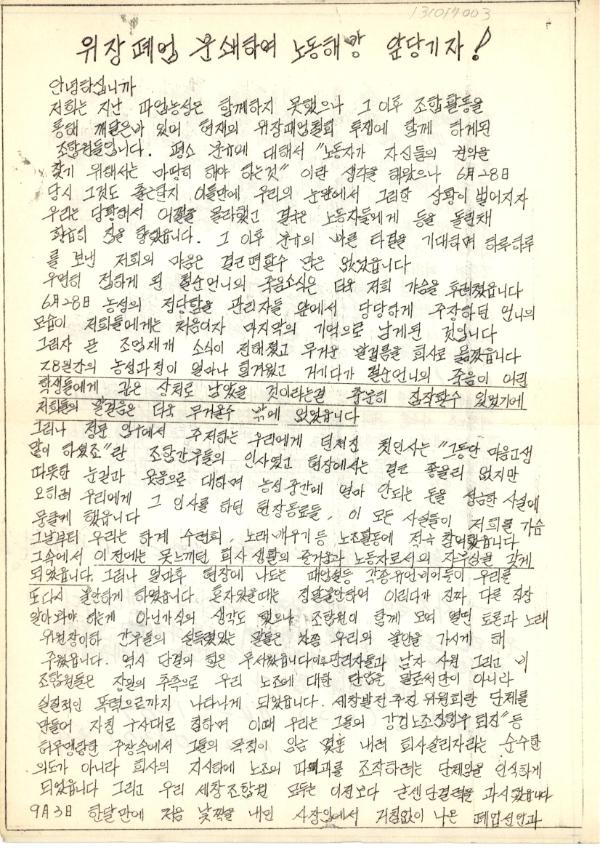 131017003
위장폐업 분쇄하여 노동해방 앞당기자!
안녕하십니까
저희는 지난 파업농성은 함께하지 못했으나 그 이후 조합활동을
통해 깨달은바 있어 현재의 위장폐업철회 투쟁에 함께 하게된
조합원들입니다. 평소 분규에 대해서 "노동자가 자신들의 권익을
찾기 위해서는 마땅히 해야 하는것" 이란 생각을 해왔으나 6月28日
당시 그것도 출근한지 이틀만에 우리의 눈앞에서 그러한 상황이 벌어지자
우리는 당황해서 어쩔줄 몰라했고 결국은 노동자들에게 등을 돌린채
황급히 집을 향했습니다. 그 이후 분규의 빠른 타결을 기대하며 하루하루
를 보낸 저희의 마음은 결코 편할수 만은 없었습니다
우연히 접하게 된 철순언니의 죽음소식은 더욱 저희 가슴을
6月28日 농성의 정당함을 관리자들 앞에서 당당하게 주장하던 언니의
모습이 저희들에게는 처음이자 마지막의 기억으로 남게된 것입니다
그러자 곧 조업재개 소식이 전해졌고 무거운 발걸음을 회사로 옮겼습니다
28일간의 농성과정이 얼마나 힘겨웠고 거기다가 철순언니의 죽음이 어린
학생들에게 깊은 상처로 남았을 것이라는걸 충분히 짐작할수 있었기에
저희들의 발걸음은 더욱 무거울수 밖에 없었습니다
그러나 정문 앞에서 주저하는 우리에게 던져진 첫인사는 "그동안 마음고생
많이 하였죠"란 조합간부들의 인사였고 현장에서는 결코 좋을리 없지만
따뜻한 눈길과 웃음으로 대하며 농성중간에 얼마 안되는 돈을 성금한 사실에
오히려 우리에게 그 인사를 하던 현장동료들, 이 모든 사실들이 저희를 가슴
뭉클케 했습니다
그날부터 우리는 하계 수련회, 노래배우기 등 노조활동에 적극 참여했습니다
그속에서 이전에는 못느끼던 회사 생활의 즐거움과 노동자로서의 자부심을 갖게
되었습니다. 그러나 얼마후 현장에 나도는 폐업설등 각종유언비어들이 우리를
또다시 불안하게 하였습니다. 혼자있을때는 정말불안하여 이러다가 진짜 다른 직장
알아봐야 하는게 아닌가싶의 생각도 했으나 조합원이 함께 모여 열띤 토론과 노래
위원장이하 간부들의 설득력있는 말들은 차츰 우리의 불안을 가시게 해
주었습니다. 역시 단결의 힘은 무서웠습니다이후관리자들과 남자 사원 그리고 비
조합원들은 장원의 주축으로 우리 노조에 대한 탄압을 말로서만이 아니라
실질적인 폭력으로까지 나타나게 되었습니다. 세창발전추진위원회란 단체를
만들어 자칭 구사대로 칭하며 이때 우리는 그들의 강경노조집행부 퇴진"등
허무맹랑한 주장속에서 그들의 목적이 임금 몇푼 내려 회사살리자라는 순수한
의도가 아니라 회사의 지시하에 노조의 파괴를 조작하려는 단체임을 인식하게
되었습니다 그리고 우리 세창조합원 모두는 이전보다 굳센단결력을 과시했습니다
9月3日 한달만에 처음 낯짝을 내민 사장입에서 거침없이 나온 폐업선언과